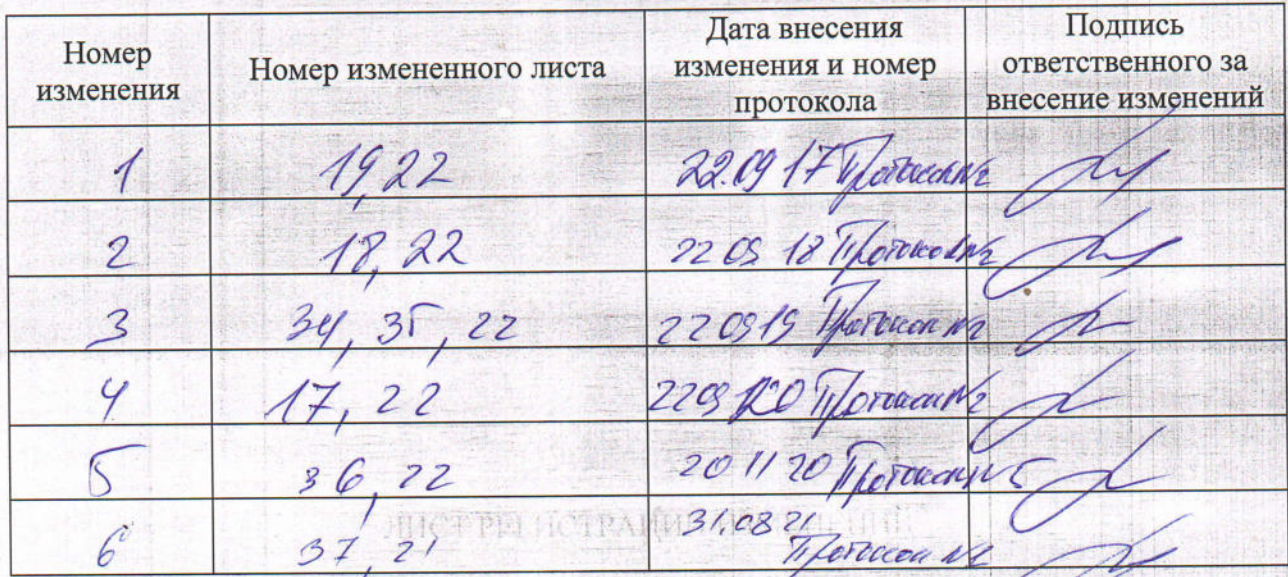 Номер изменения
Номер измененного листа
Дата внесения изменения и номер протокола
Подпись ответственного за внесение изменений
1 19, 22 22.09 17 Протокол №2
2 18, 22 22 09 18 Протокол №2
3 34, 35, 22 22 09 19 Протокол №2
4 17, 22 22 09 20 Протокол №2
5 36, 22 20 11 20 Протокол № 5
6 37, 21 31.08 21
Протокол №1
ЛИСТ РЕГИСТРАЦИИ ИЗМЕНЕНИЙ